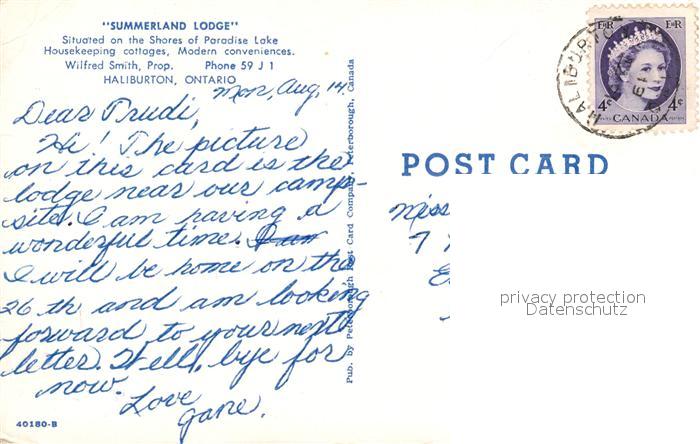 "SUMMERLAND LODGE"
Situated on the Shores of Paradise Lake
Housekeeping cottages, Modern conveniences.
Wilfred Smith, Prop. Phone 59 J 1
HALIBURTON, ONTARIO
Mon, Aug, 14.
Dear Trudi,
Hi! The picture
on this card is the
lodge near our camp-
site. I am having a
wonderful time. I am
I will be home on the
26 th and am looking
forward to your next
letter. Well, bye for
now.
Love
Jane.
40180-B
Pub. by Peterborough Post Card Company, Peterborough, Canada
POST CARD
Miss
7
E R
E R
HALIBURTON
4¢
4¢
CANADA
POSTES
POSTAGE
privacy protection
Datenschutz